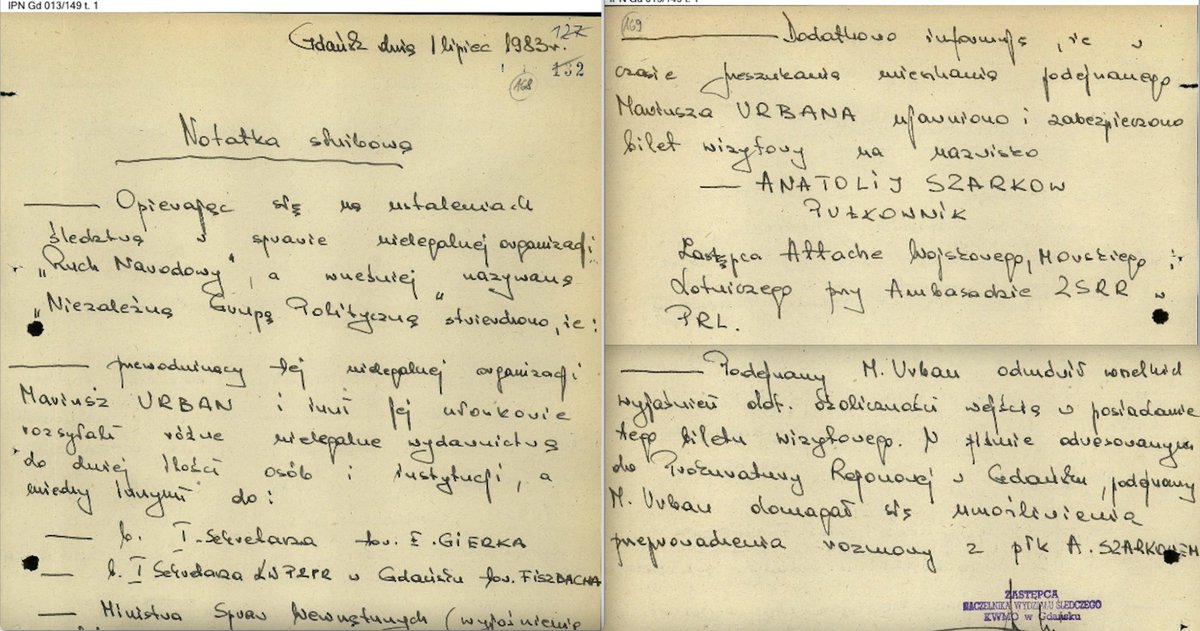 IPN Gd 013/149 t. 1
127
Gdańsk dnia 1 lipiec 1983 r.
132
168
Notatka służbowa
Opierając się na ustaleniach
śledztwa w sprawie nielegalnej organizacji
"Ruch Narodowy", a wcześniej nazywaną
"Niezależną Grupą Polityczną" stwierdzono, że:
przewodniczący tej nielegalnej organizacji
Mariusz URBAN i inni jej członkowie
rozsyłali różne nielegalne wydawnictwa
do dużej ilości osób i instytucji, a
między innymi do:
— b. I-Sekretarza tow. E. GIERKA
— b. I Sekretarza KW PZPR w Gdańsku tow. FISZBACHA
— Ministra Spraw Wewnętrznych (wyjaśnienie
IPN Gd 013/149 t. 1
169
Dodatkowo informuję, że w
czasie przeszukania mieszkania podejrzanego
Mariusza URBANA ujawniono i zabezpieczono
bilet wizytowy na nazwisko
— ANATOLIJ SZARKOW
PUŁKOWNIK
Zastępca Attache Wojskowego, Morskiego i
Lotniczego przy Ambasadzie ZSRR w
PRL.
Podejrzany M. Urban odmówił wszelkich
wyjaśnień dot. okoliczności wejścia w posiadanie
tego biletu wizytowego. W piśmie adresowanym
do Prokuratury Rejonowej w Gdańsku, podejrzany
M. Urban domagał się umożliwienia
przeprowadzenia rozmowy z płk A. SZARKOWEM
ZASTĘPCA
NACZELNIKA WYDZIAŁU ŚLEDCZEGO
KWMO w Gdańsku